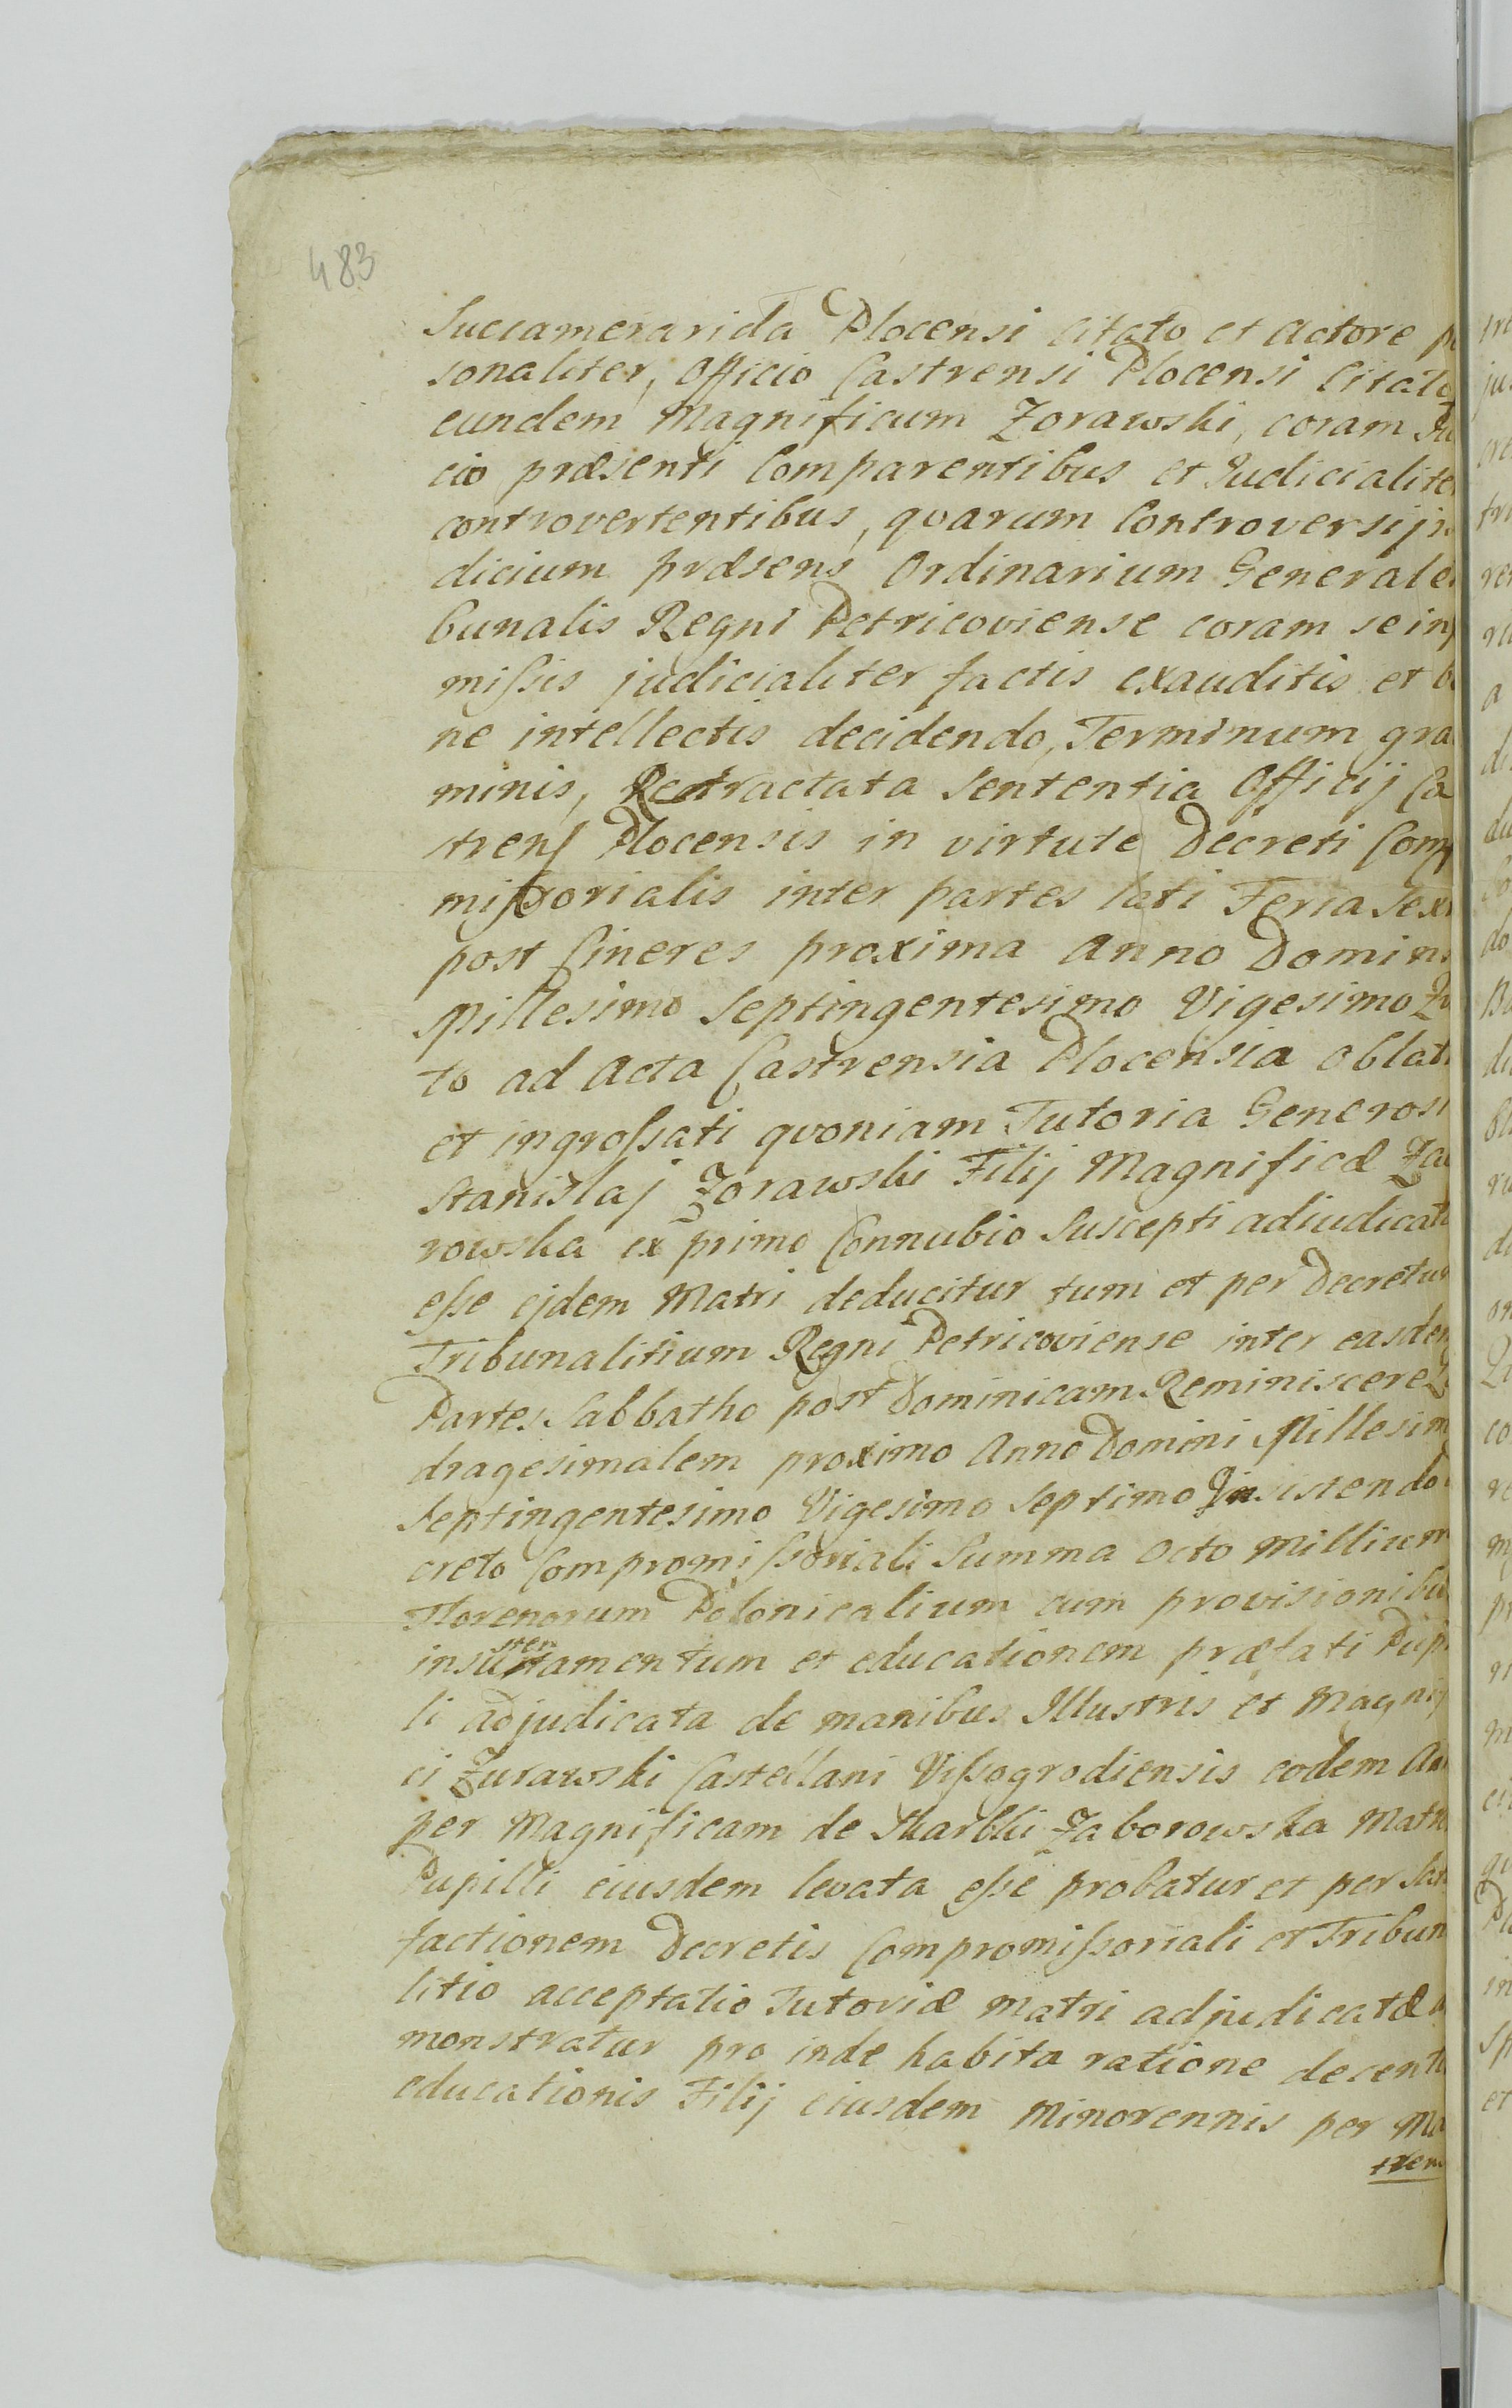 483
Succamerarida Plocensi citato et Actore p
sonaliter, Officio Castrensi Plocensi Citat
eundem Magnificum Zorawski, coram Ju
cio præsenti Comparentibus et Judicialite
controvertentibus, qvarum Controversijs
dicium præsens Ordinarium Generale
bunalis Regni Petricoviense coram se in
missis judicialiter factis exauditis et b
ne intellectis decidendo, Terminum gra
minis, Retractata Sententia Officij Ca
strens Plocensis in virtute Decreti Com
missorialis inter partes lati Feria Sex
post Cineres proxima Anno Domin
Millesimo Septingentesimo Vigesimo
to ad Acta Castrensia Plocensia oblat
et ingrossati qvoniam Tutoria Generosi
Stanislaj Zorawski Filij Magnificæ Za
rowska ex primo Connubio Suscepti adiudicat
esse ejdem Matri deducitur tum et per Decretu
Tribunalitium Regni Petricoviense inter easdem
Partes Sabbatho post Dominicam Reminiscere
dragesimalem proximo Anno Domini Millesim
Septingentesimo Vigesimo Septimo Insistendo
creto Compromissoriali Summa Octo Millium
Florenorum Polonicalium cum provisionibu
in sustentamentum et educationem præfati Pup
li adjudicata de manibus Illustris et Magni
ci Zurawski Castellani Vissogrodiensis eodem An
per Magnificam de Skarbki Zaborowska Matr
Pupilli eiusdem levata esse probatur et per Sat
factionem Decretis Compromissoriali et Tribun
litio acceptatio Tutoriæ matri adjudicatæ
monstratur pro inde habita ratione decent
educationis Filij eiusdem Minorennis per Ma
trem